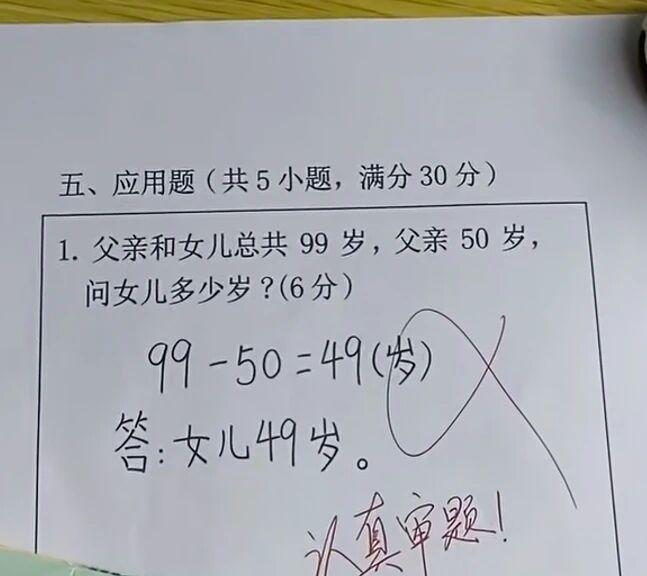 五、应用题（共5小题，满分30分）
1. 父亲和女儿总共 99 岁，父亲 50 岁，
问女儿多少岁？(6分）
99－50＝49(岁)
答:女儿49岁。
认真审题!